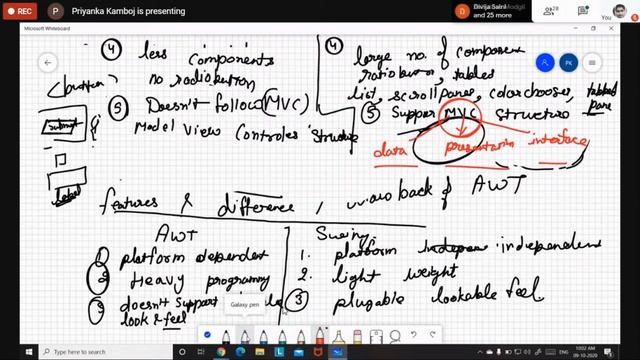 REC
P Priyanka Kamboj is presenting
and 25 more
28
Microsoft Whiteboard
PK
4 less components
no radio button
5 Doesn't follow (MVC)
Model View Controler Structure
<button>
submit
label
4 large no. of component
radio button, tables
list, scroll pane, color chooser, tabbed pane
5 Support MVC structure
data presentation interface
features & difference, drawback of AWT
AWT
1 platform dependent
2 Heavy programing
3 doesn't support
look & feel
Swing
1. platform independent
2. light weight
3 plugable lookable feel
Galaxy pen
Type here to search
ENG
10:02 AM
09-10-2020